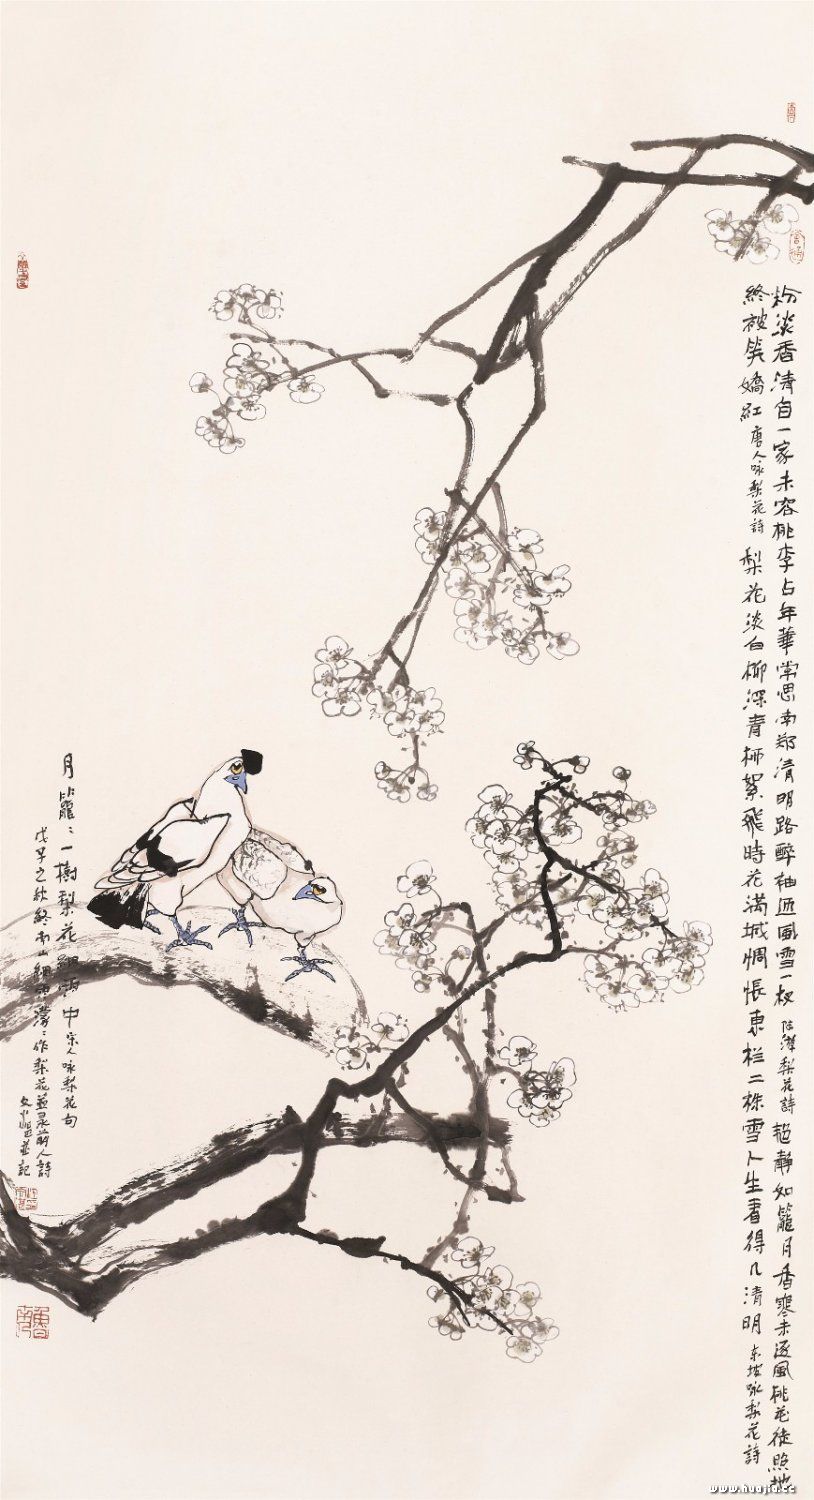 粉淡香清自一家未容桃李占年華常思南郑清明路醉袖迎風雪一杈 陆游梨花詩 艳静如籠月香寒未逐風桃花徒照地
終被笑嬌紅 唐人咏梨花詩 梨花淡白柳深青柳絮飛時花满城惆悵東栏二株雪人生看得几清明 东坡咏梨花詩
月籠：一樹梨花細雨中 宋人咏梨花句
戊子之秋終南山細雨濛：作梨花並录前人詩
並記
www.huajia.cc